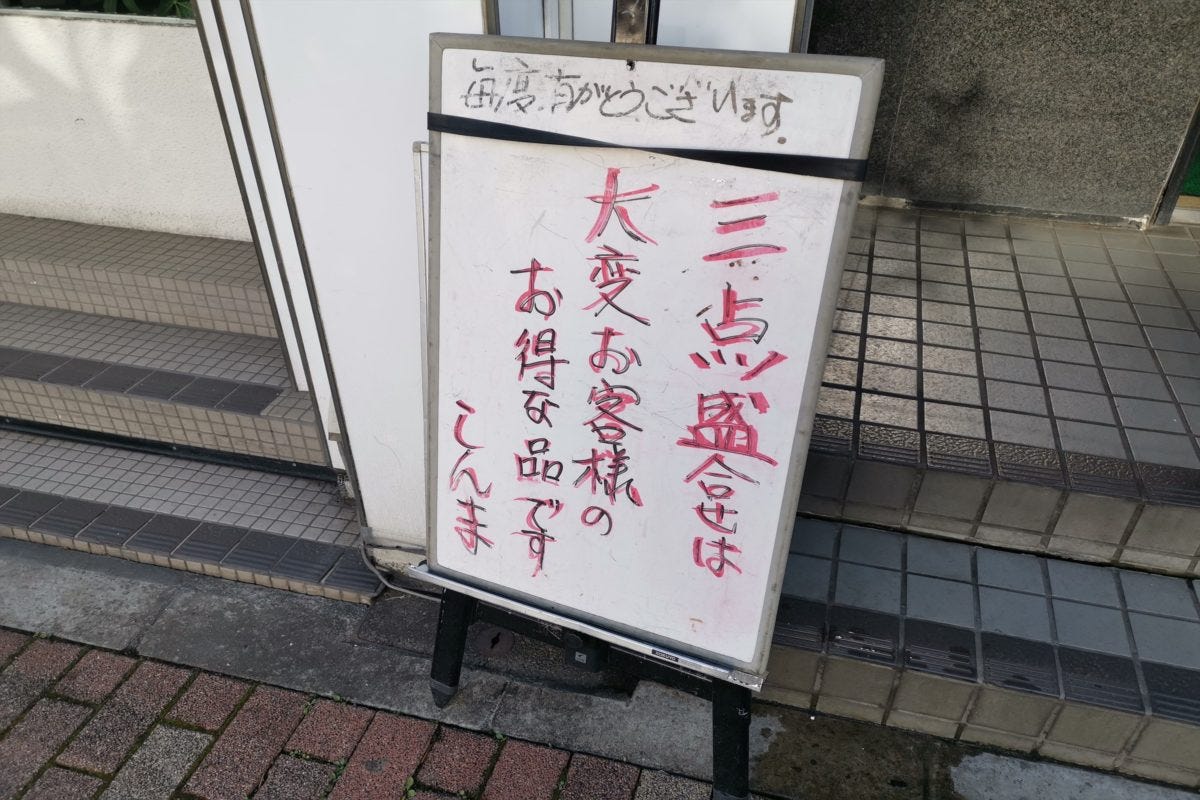 毎度有がとうございます.
三点盛合せは
大変お客様の
お得な品です
しんま